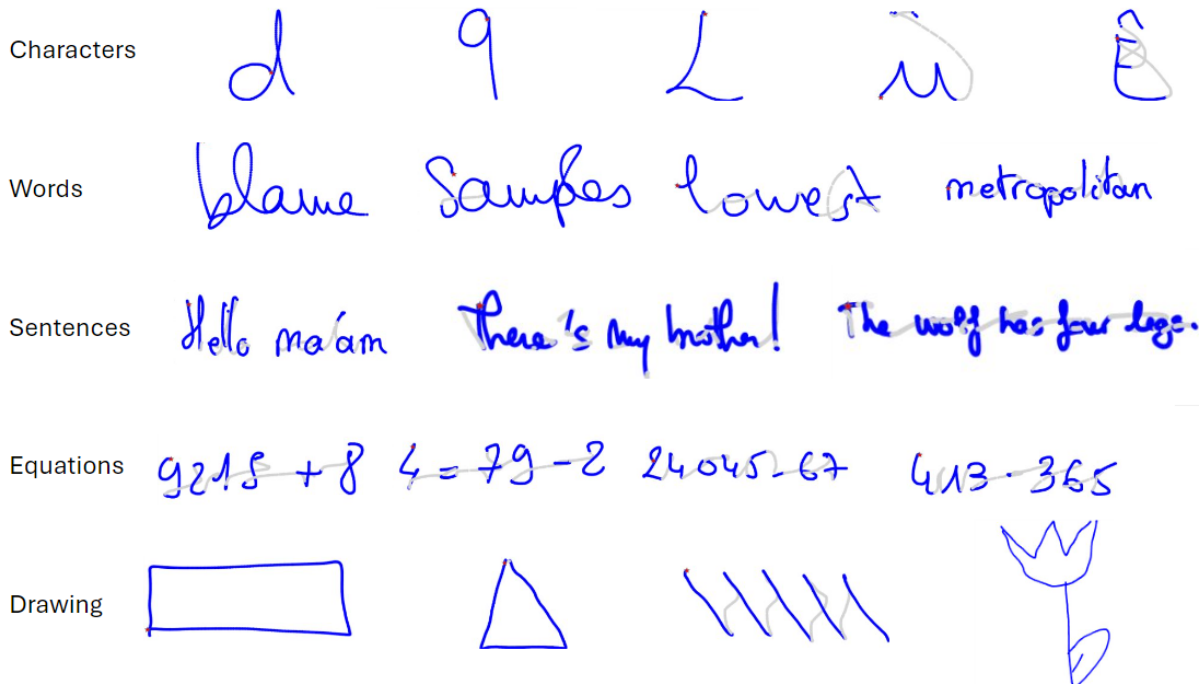 Characters d q L Ê
Words blame Samples lowest metropolitan
Sentences Hello ma'am There's my brother! The wolf has four legs.
Equations 9218 + 8 4 = 79 - 2 24045 - 67 413 - 365
Drawing